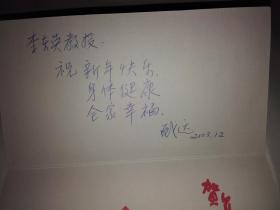 李东英教授.
祝 新年快乐
身体健康
全家幸福.
2003.12
賀